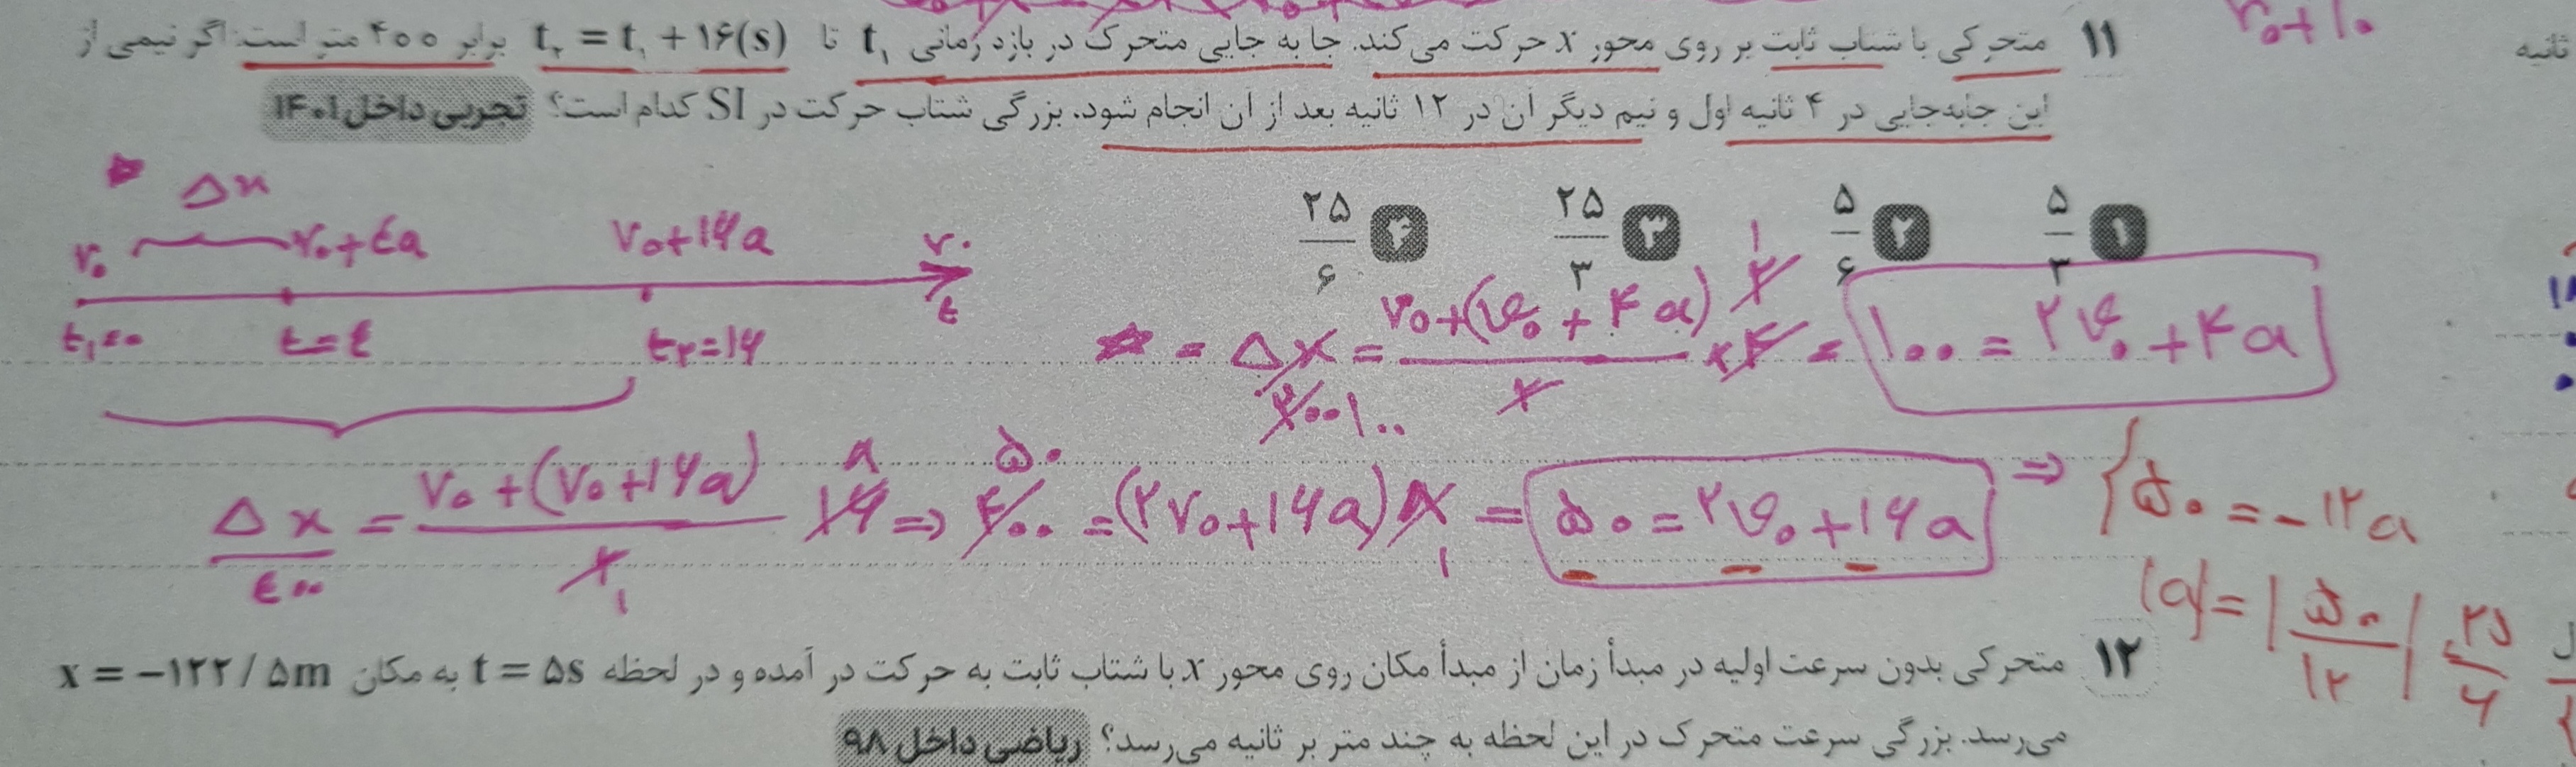 ۱۱ متحرکی با شتاب ثابت بر روی محور x حرکت می‌کند. جا به جایی متحرک در بازه زمانی t₁ تا t₂ = t₁ + ۱۶(s) برابر ۴۰۰ متر است. اگر نیمی از
این جابه‌جایی در ۴ ثانیه اول و نیم دیگر آن در ۱۲ ثانیه بعد از آن انجام شود، بزرگی شتاب حرکت در SI کدام است؟ تجربی داخل ۱۴۰۱
۱ ۵/۳ ۲ ۵/۶ ۳ ۲۵/۳ ۴ ۲۵/۶
Δx
v₀ v₀+٤a v₀+۱۶a v.
t₁=۰ t=٤ t₂=۱۶ t
= Δx = v₀+(v₀+۴a)/۲ ×۴ = ۱۰۰ = ۲v₀+۴a
۲۰۰ ۱۰۰
Δx = v₀+(v₀+۱۶a)/۲ ۱۶ ⇒ ۴۰۰ = (۲v₀+۱۶a)۸ = ۵۰ = ۲v₀+۱۶a ⇒ { ۵۰ = -۱۲a
٤۰۰
|a| = |۵۰/۱۲| = ۲۵/۶
۱۲ متحرکی بدون سرعت اولیه در مبدأ زمان از مبدأ مکان روی محور x با شتاب ثابت به حرکت در آمده و در لحظه t = ۵s به مکان x = −۱۲۲/۵m
می‌رسد. بزرگی سرعت متحرک در این لحظه به چند متر بر ثانیه می‌رسد؟ ریاضی داخل ۹۸
ثانیه